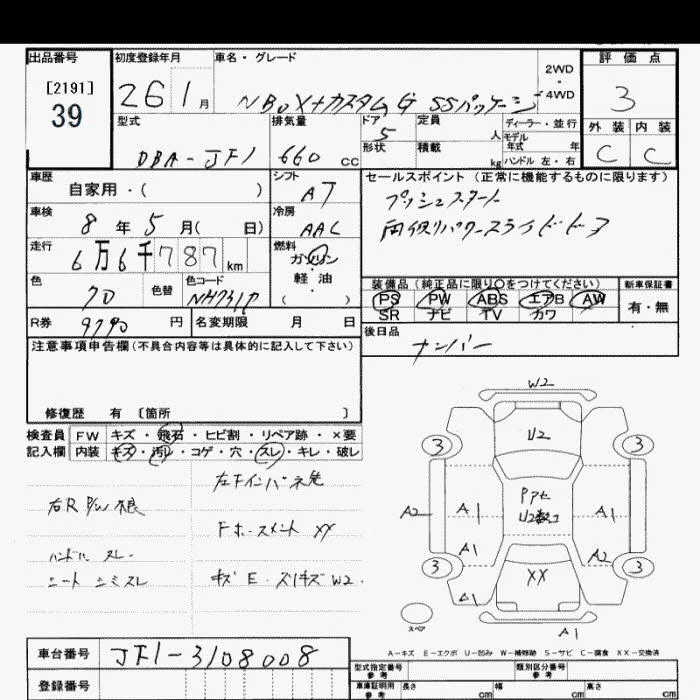 出品番号
[2191]
39
初度登録年月
26 1 月
車名・グレード
N BOX+カスタム G SSパッケージ
2WD
・
4WD
評価点
3
外装 内装
C C
型式
DBA-JF1
排気量
660 cc
ドア
5
形状
定員
人
積載
kg
ディーラー・並行
モデル
年式 年
ハンドル 左・右
車歴
自家用・( )
シフト
AT
セールスポイント (正常に機能するものに限ります)
プッシュスタート
両側パワースライドドア
車検
8 年 5 月( 日)
冷房
AAC
走行
6万6千787 km
燃料
ガソリン
・
軽油
( )
色
色替
色コード
NH731P
装備品 (純正品に限り○をつけてください)
PS PW ABS エアB AW
SR ナビ TV カワ
新車保証書
有・無
R券
9790 円
名変期限 月 日
後日品
ナンバー
注意事項申告欄 (不具合内容等は具体的に記入して下さい)
修復歴 有 〔箇所 〕
検査員
記入欄
FW キズ・飛石・ヒビ割・リペア跡・×要
内装 キズ・汚レ・コゲ・穴・スレ・キレ・破レ
右R P/W
ハンドル スレ
シート シミスレ
左Fインパネ
XX
キズE
W2
U2
3
3
A2
A1
A1
A1
A2
XX
3
3
A1
スペア
A1
A-キズ E-エクボ U-凹み W-補修跡 S-サビ C-腐食 XX-交換済
車台番号
JF1-3108008
登録番号
型式指定番号
類別区分番号
車庫証明用
参考
長さ cm
幅 cm
高さ cm